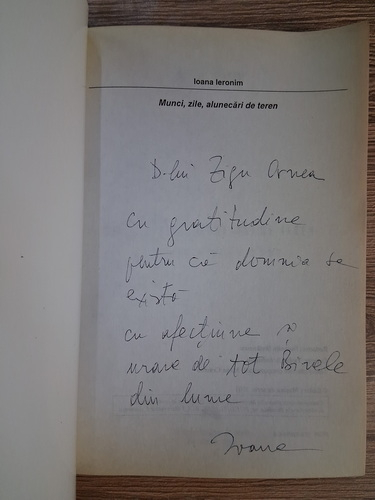 Ioana Ieronim
Munci, zile, alunecări de teren
D-lui Zigu Ornea
cu gratitudine
pentru că domnia sa
există
cu afecțiune și
urare de tot Binele
din lume
Ioana